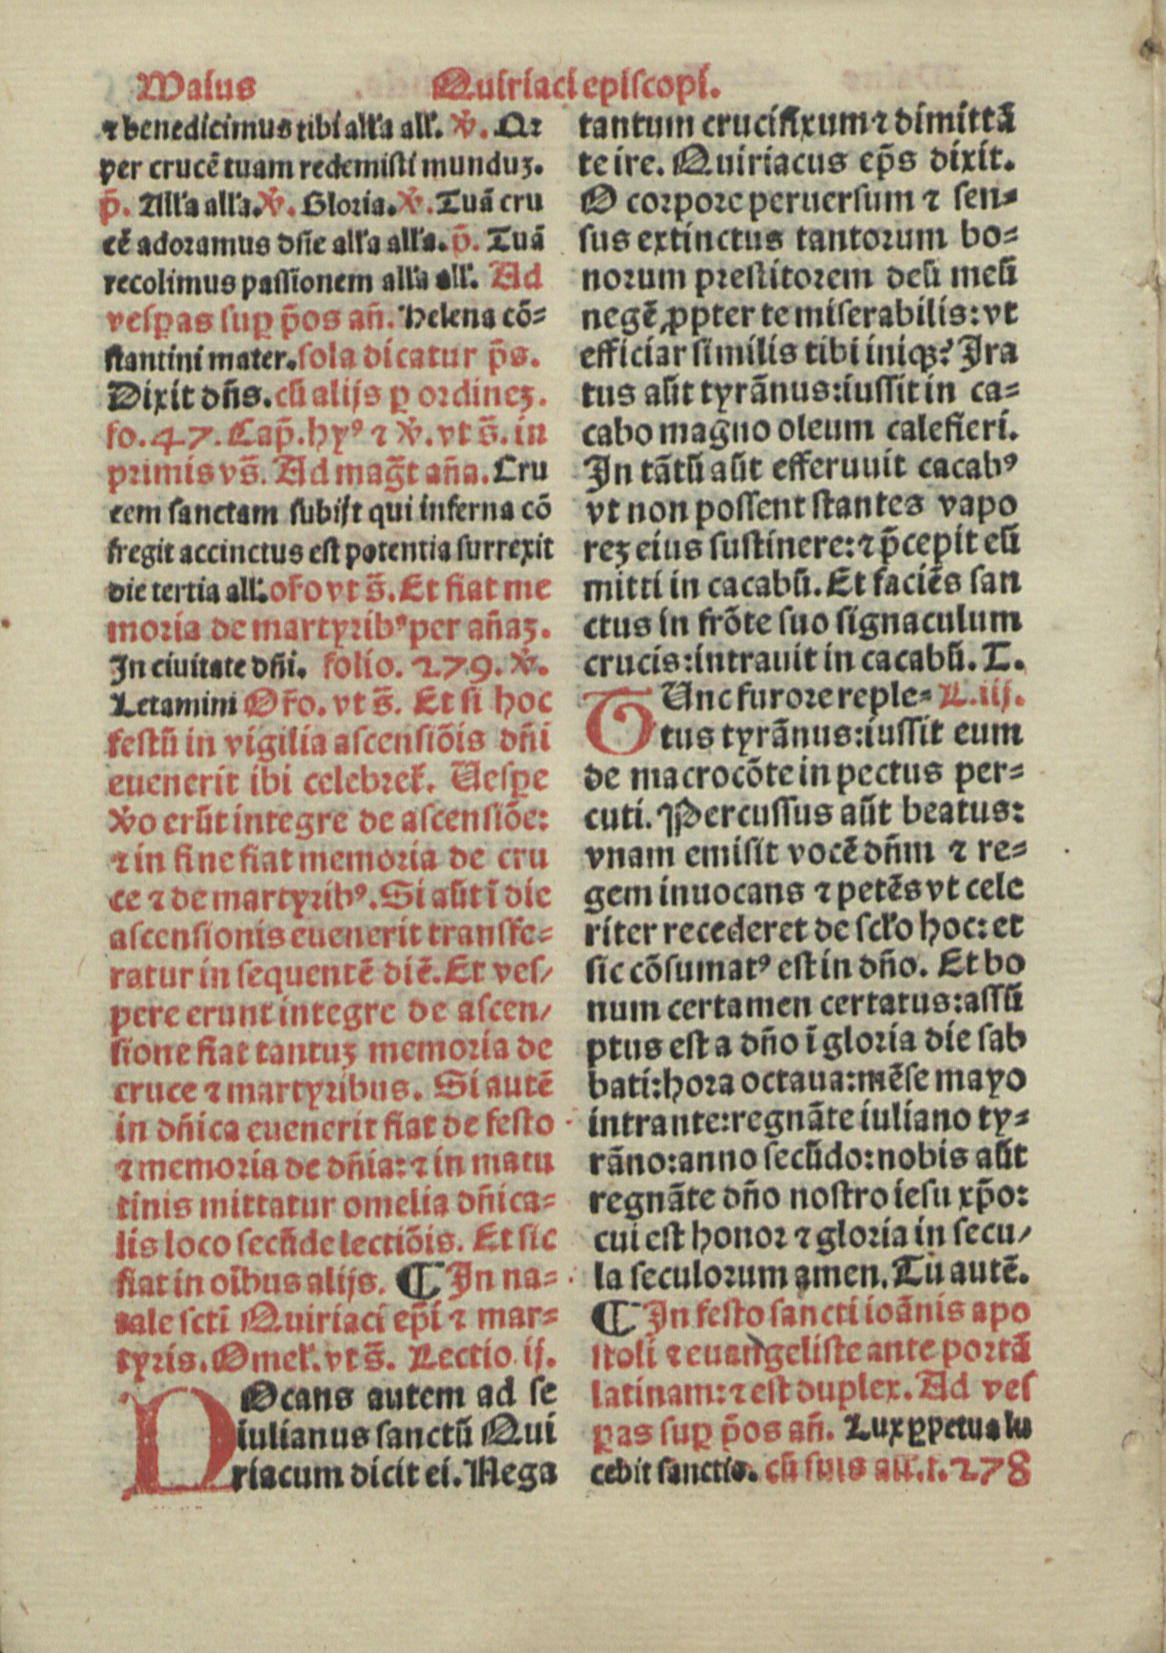 Maius Quiriaci episcopi.
⁊ benedicimus tibi all'a all'. ℣. Qꝛ
per crucē tuam redemisti munduz.
p̄. All'a all'a. ℣. Gloria. ℣. Tuā cru
cē adoramus dn̄e all'a all'a. p̄. Tuā
recolimus passionem all'a all'. Ad
vesꝑas suꝑ p̄os an̄. Helena cō⸗
stantini mater. sola dicatur p̄s.
Dixit dn̄s. cū alijs ꝑ ordinez.
fo. 47. Cap̄. hyꝰ ⁊ ℣. vt s̄. in
primis vs̄. Ad maḡt an̄a. Cru
cem sanctam subijt qui inferna cō
fregit accinctus est potentia surrexit
die tertia all'. or̄o vt s̄. Et fiat me
moria de martyribꝰ per an̄az.
In ciuitate dn̄i. folio. 279. ℣.
Letamini Or̄o. vt s̄. Et si hoc
festū in vigilia ascensiōis dn̄i
euenerit ibi celebret᷑. Uesꝑe
℣o erūt integre de ascensiōe:
⁊ in fine fiat memoria de cru
ce ⁊ de martyribꝰ. Si aūt ī die
ascensionis euenerit transfe⸗
ratur in sequentē diē. Et ves/
pere erunt integre de ascen/
sione fiat tantuz memoria de
cruce ⁊ martyribus. Si autē
in dn̄ica euenerit fiat de festo
⁊ memoria de dn̄ia: ⁊ in matu
tinis mittatur omelia dn̄ica⸗
lis loco secūde lectiōis. Et sic
fiat in oībus alijs. ¶ In na⸗
tale scti Quiriaci ep̄i ⁊ mar⸗
tyris. Omel'. vt s̄. Lectio. ij.
VOcans autem ad se
iulianus sanctū Qui
riacum dicit ei. Nega
tantum crucifixum ⁊ dimittā
te ire. Quiriacus ep̄s dixit.
O corpore peruersum ⁊ sen⸗
sus extinctus tantorum bo⸗
norum prestitorem deū meū
negē ꝓpter te miserabilis: vt
efficiar similis tibi iniqꝫ? Ira
tus aūt tyrānus: iussit in ca⸗
cabo magno oleum calefieri.
In tātū aūt efferuuit cacabꝰ
vt non possent stantes vapo
rez eius sustinere: ⁊ p̄cepit eū
mitti in cacabū. Et faciēs san
ctus in frōte suo signaculum
crucis: intrauit in cacabū. T.
TUnc furore reple⸗ L. iij.
tus tyrānus: iussit eum
de macrocōte in pectus per⸗
cuti. Percussus aūt beatus:
vnam emisit vocē dn̄m ⁊ re⸗
gem inuocans ⁊ petēs vt cele
riter recederet de sc̄lo hoc: et
sic cōsumatꝰ est in dn̄o. Et bo
num certamen certatus: assū
ptus est a dn̄o ī gloria die sab
bati: hora octaua: mēse mayo
intrante: regnāte iuliano ty⸗
rāno: anno secūdo: nobis aūt
regnāte dn̄o nostro iesu xp̄o:
cui est honor ⁊ gloria in secu/
la seculorum amen. Tu autē.
¶ In festo sancti ioānis apo
stoli ⁊ euangeliste ante portā
latinam: ⁊ est duplex. Ad ves
ꝑas suꝑ p̄os an̄. Lux ꝑpetua lu
cebit sanctis. cū suis all'. f. 278